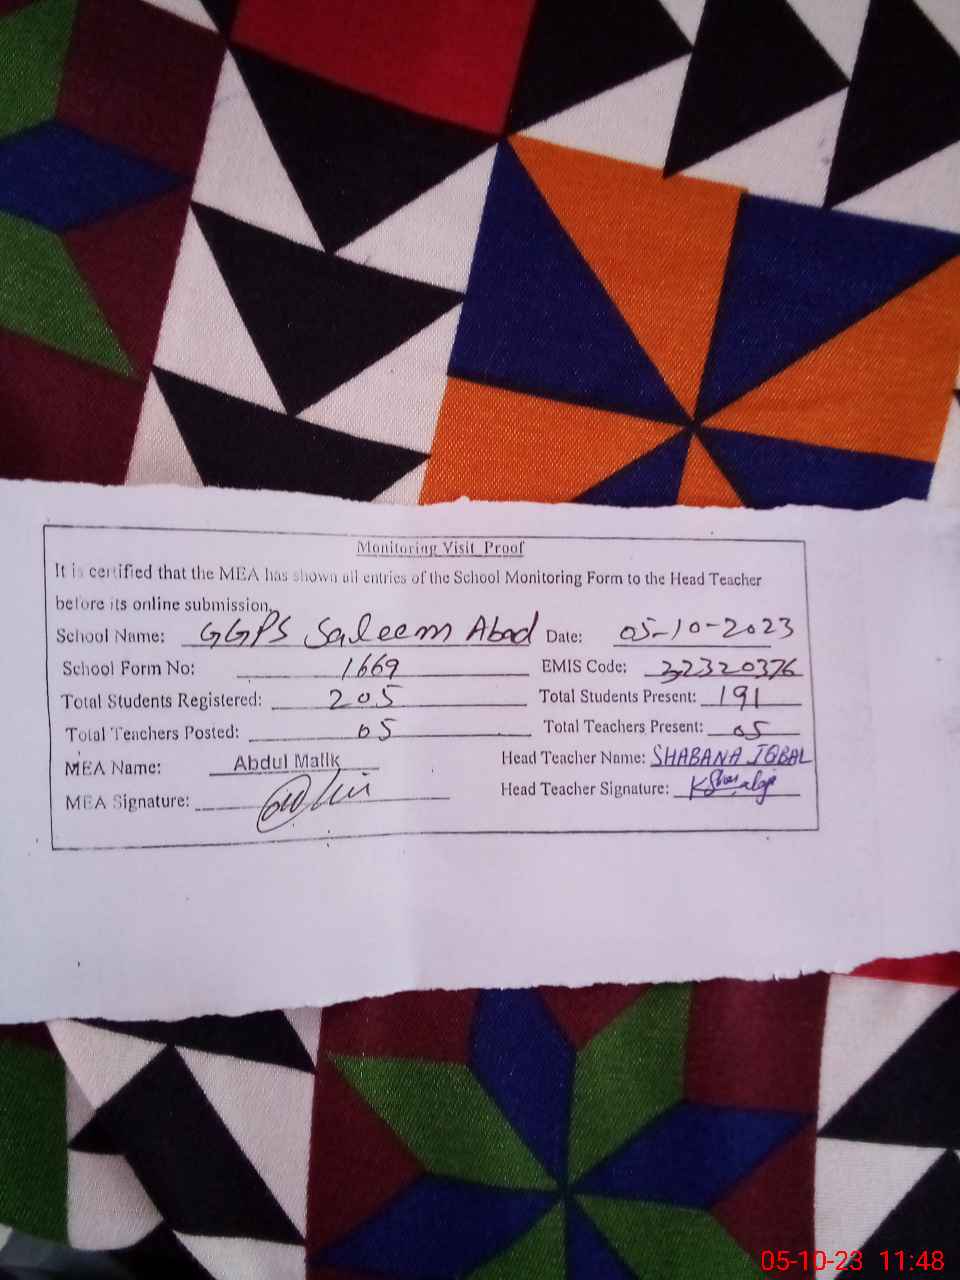 Monitoring Visit Proof
It is certified that the MEA has shown all entries of the School Monitoring Form to the Head Teacher
before its online submission.
School Name: GGPS Saleem Abad Date: 05-10-2023
School Form No: 1669 EMIS Code: 32320376
Total Students Registered: 205 Total Students Present: 191
Total Teachers Posted: 05 Total Teachers Present: 05
MEA Name: Abdul Malik Head Teacher Name: SHABANA IQBAL
MEA Signature: Head Teacher Signature:
05-10-23 11:48